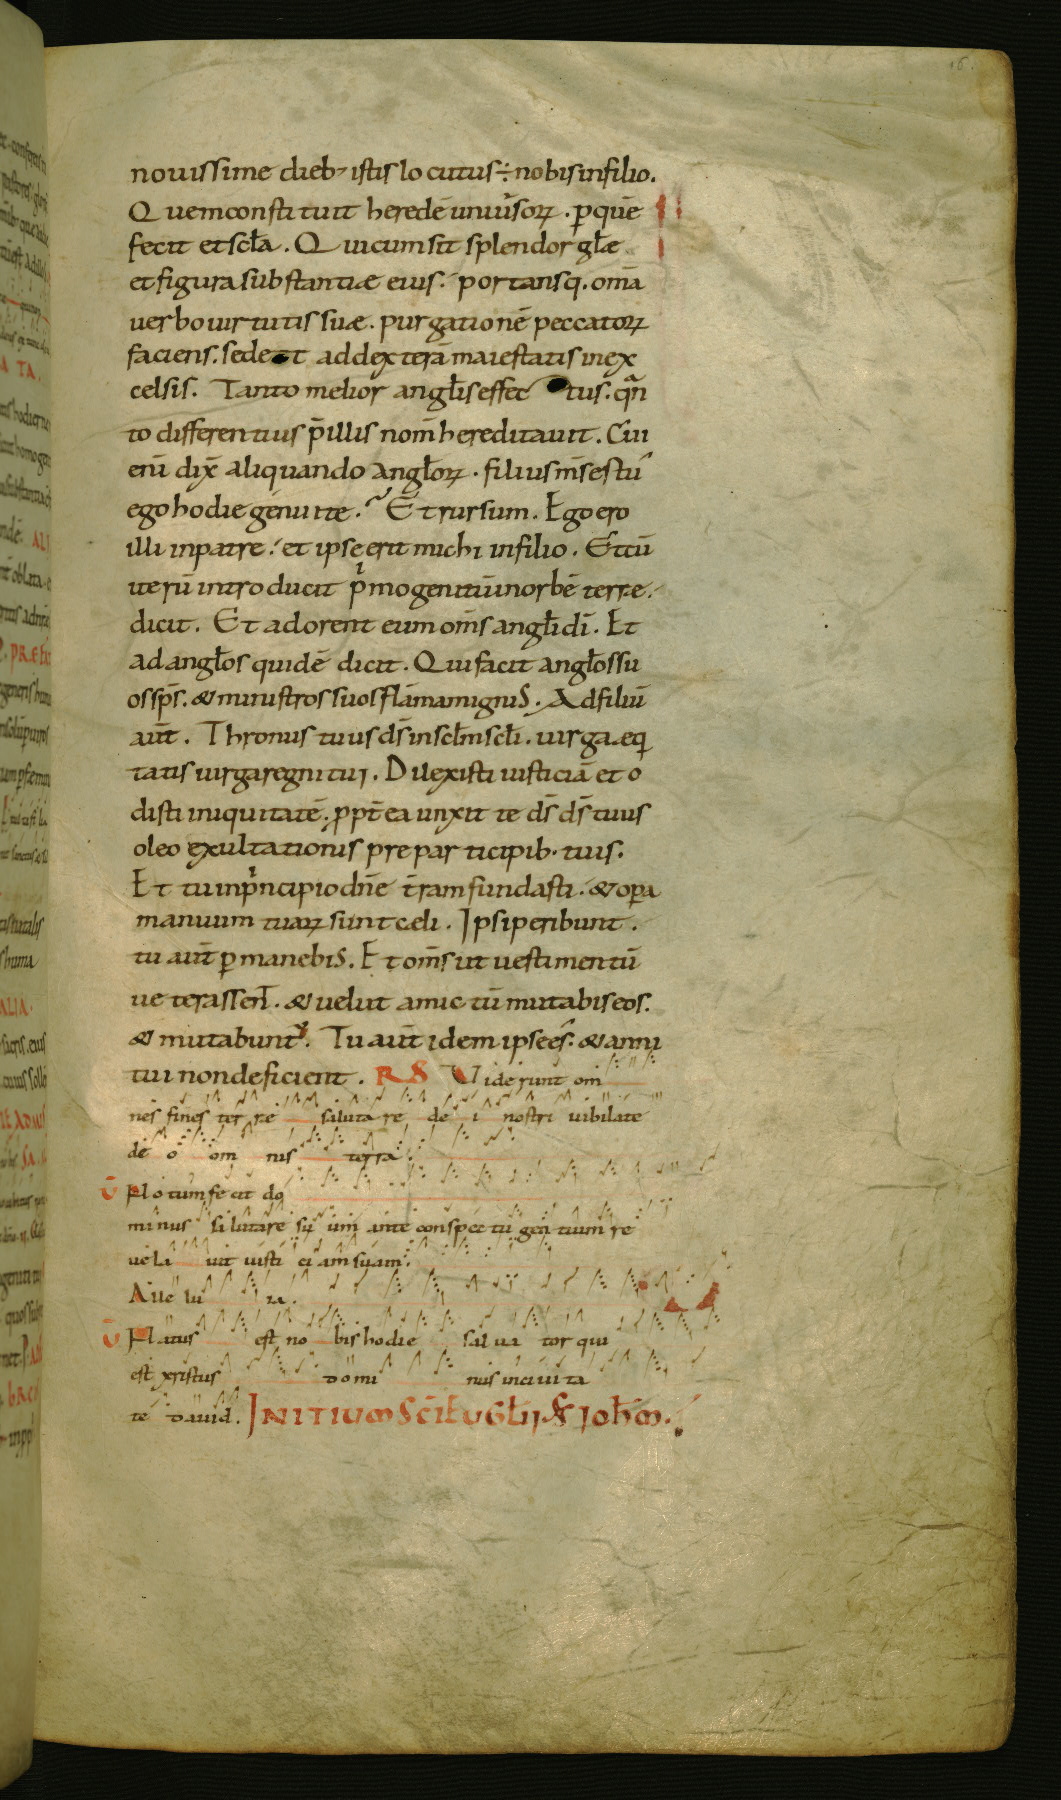 .6.
novissime dieb; istis locutus ÷ nobis in filio.
Quem constituit heredē univ̄soꝝ. ꝑ quē
fecit et scl̄a. Qui cum sit splendor gl̄ę
et figura substantiæ eius. portansq. om̄a
verbo virtutis suæ. purgationē peccatoꝝ
faciens. sedet ad dexterā maiestatis in ex
celsis. Tanto melior angl̄is effectus. qn̄
to differentius p̄ illis nom̄ hereditavit. Cui
eni dix̄ aliquando angl̄oꝝ. filius m̄s es tu
ego hodie genui te. Et rursum. Ego ero
illi in patre. et ipse erit michi in filio. Et cū
iterū introducit primogenitū in orbē terrę.
dicit. Et adorent eum om̄s angl̄i dī. Et
ad angl̄os quidē dicit. Qui facit angl̄os su
os sp̄s. & ministros suos flāmam ignis. Ad filiū
aūt. Thronus tuus d̄s in scl̄m scl̄i. virga eq
tatis virga regni tui. Dilexisti iusticiā et o
disti iniquitatē. ꝓpt̄ea unxit te d̄s d̄s tuus
oleo exultationis pre participib. tuis.
Et tu in principio dn̄e t̄ram fundasti. & oꝑa
manuum tuaꝝ sunt cęli. Ipsi peribunt.
tu aūt ꝑmanebis. Et om̄s ut vestimentū
veterascent. & velut amictū mutabis eos.
& mutabunt᷑. Tu aūt idem ipse es. & anni
tui non deficient. RS Viderunt om
nes fines terrę salutare dei nostri iubilate
deo omnis terra.
V̄ Notum fecit do
minus salutare suum ante conspectu gentium re
vela vit iusti ciam suam.
Alle lu ia.
V̄ Natus est nobis hodie salvator qui
est xristus domi nus in civita
te David. INITIUM SC̄I EVGL̄II SC̄ IOHM̄.